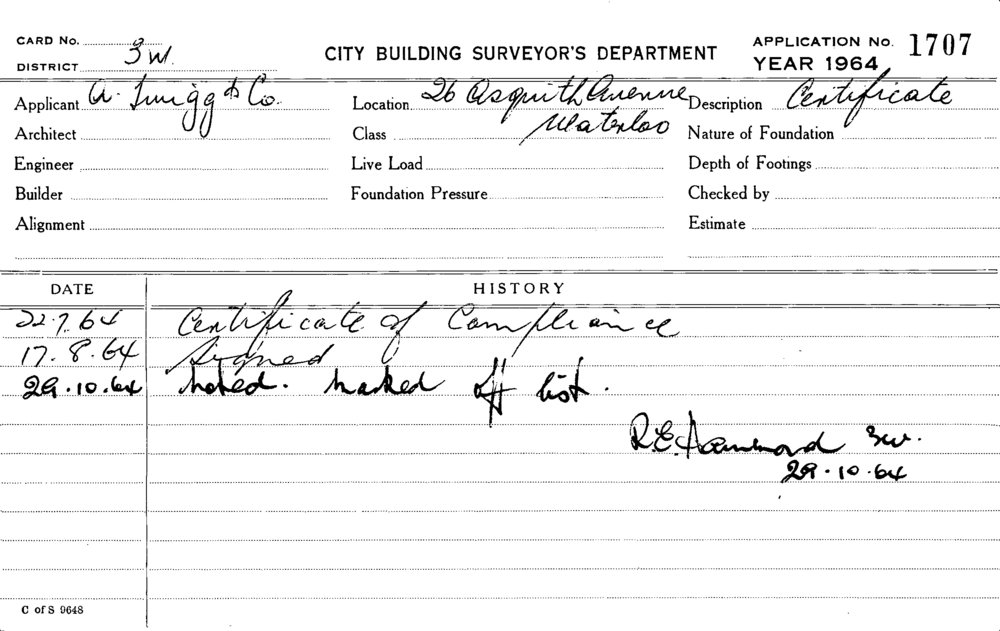 CARD No.
DISTRICT 3W.
CITY BUILDING SURVEYOR'S DEPARTMENT
APPLICATION No. 1707
YEAR 1964
Applicant A. Twigg & Co.
Location 26 Asquith Avenue
Waterloo
Description Certificate
Architect
Class
Nature of Foundation
Engineer
Live Load
Depth of Footings
Builder
Foundation Pressure
Checked by
Alignment
Estimate
DATE HISTORY
22.7.64 Certificate of Compliance
17.8.64 Signed
29.10.64 Noted. Marked off list.
R.E. Hammond 3w.
29.10.64
C of S 9648